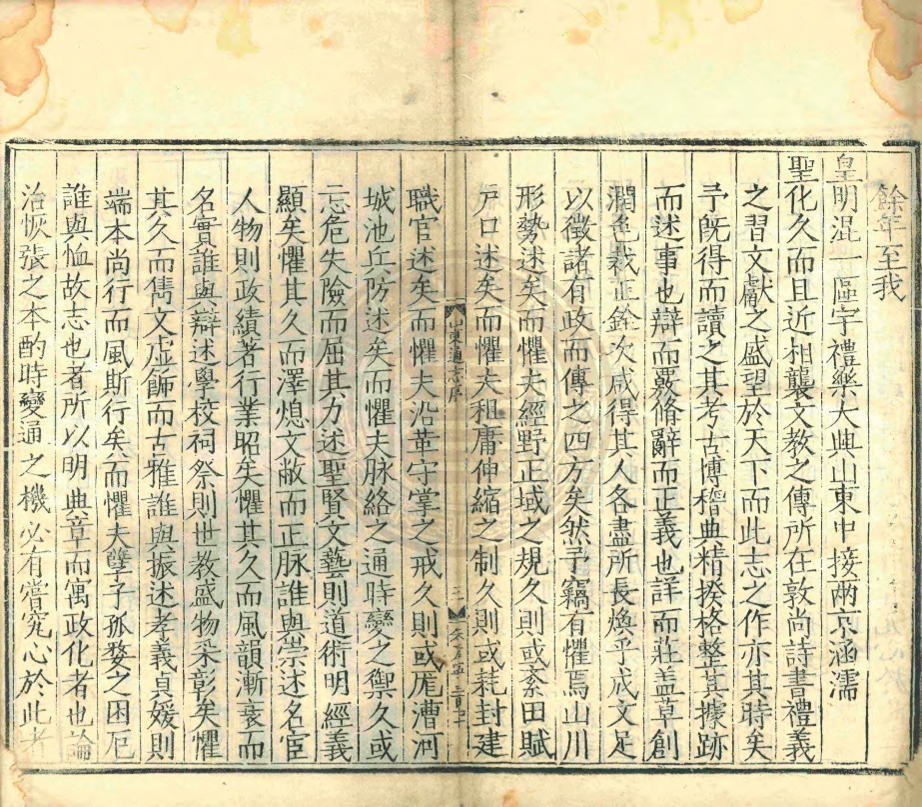 餘年至我
皇明混一區宇禮樂大典山東中接兩京涵濡
聖化久而且近相襲文教之傳所在敦尚詩書禮義
之習文獻之盛望於天下而此志之作亦其時矣
予旣得而讀之其考古博稽典精揆格整其據跡
而述事也辯而覈脩辭而正義也詳而莊盖草創
潤色裁正銓次咸得其人各盡所長煥乎成文足
以徵諸有政而傳之四方矣然予竊有懼焉山川
形勢述矣而懼夫經野正域之規久則或紊田賦
戶口述矣而懼夫租庸伸縮之制久則或耗封建
山東通志序
三
職官述矣而懼夫沿革守掌之戒久則或厖漕河
城池兵防述矣而懼夫脉絡之通時變之禦久或
忘危失險而屈其力述聖賢文藝則道術明經義
顯矣懼其久而澤熄文敝而正脉誰與崇述名宦
人物則政績著行業昭矣懼其久而風韻漸衰而
名實誰與辯述學校祠祭則世教盛物采彰矣懼
其久而儁文虛飾而古雅誰與振述孝義貞媛則
端本尚行而風斯行矣而懼夫孽子孤嫠之困厄
誰與恤故志也者所以明典章而寓政化者也論
治恢張之本酌時變通之機必有嘗究心於此者